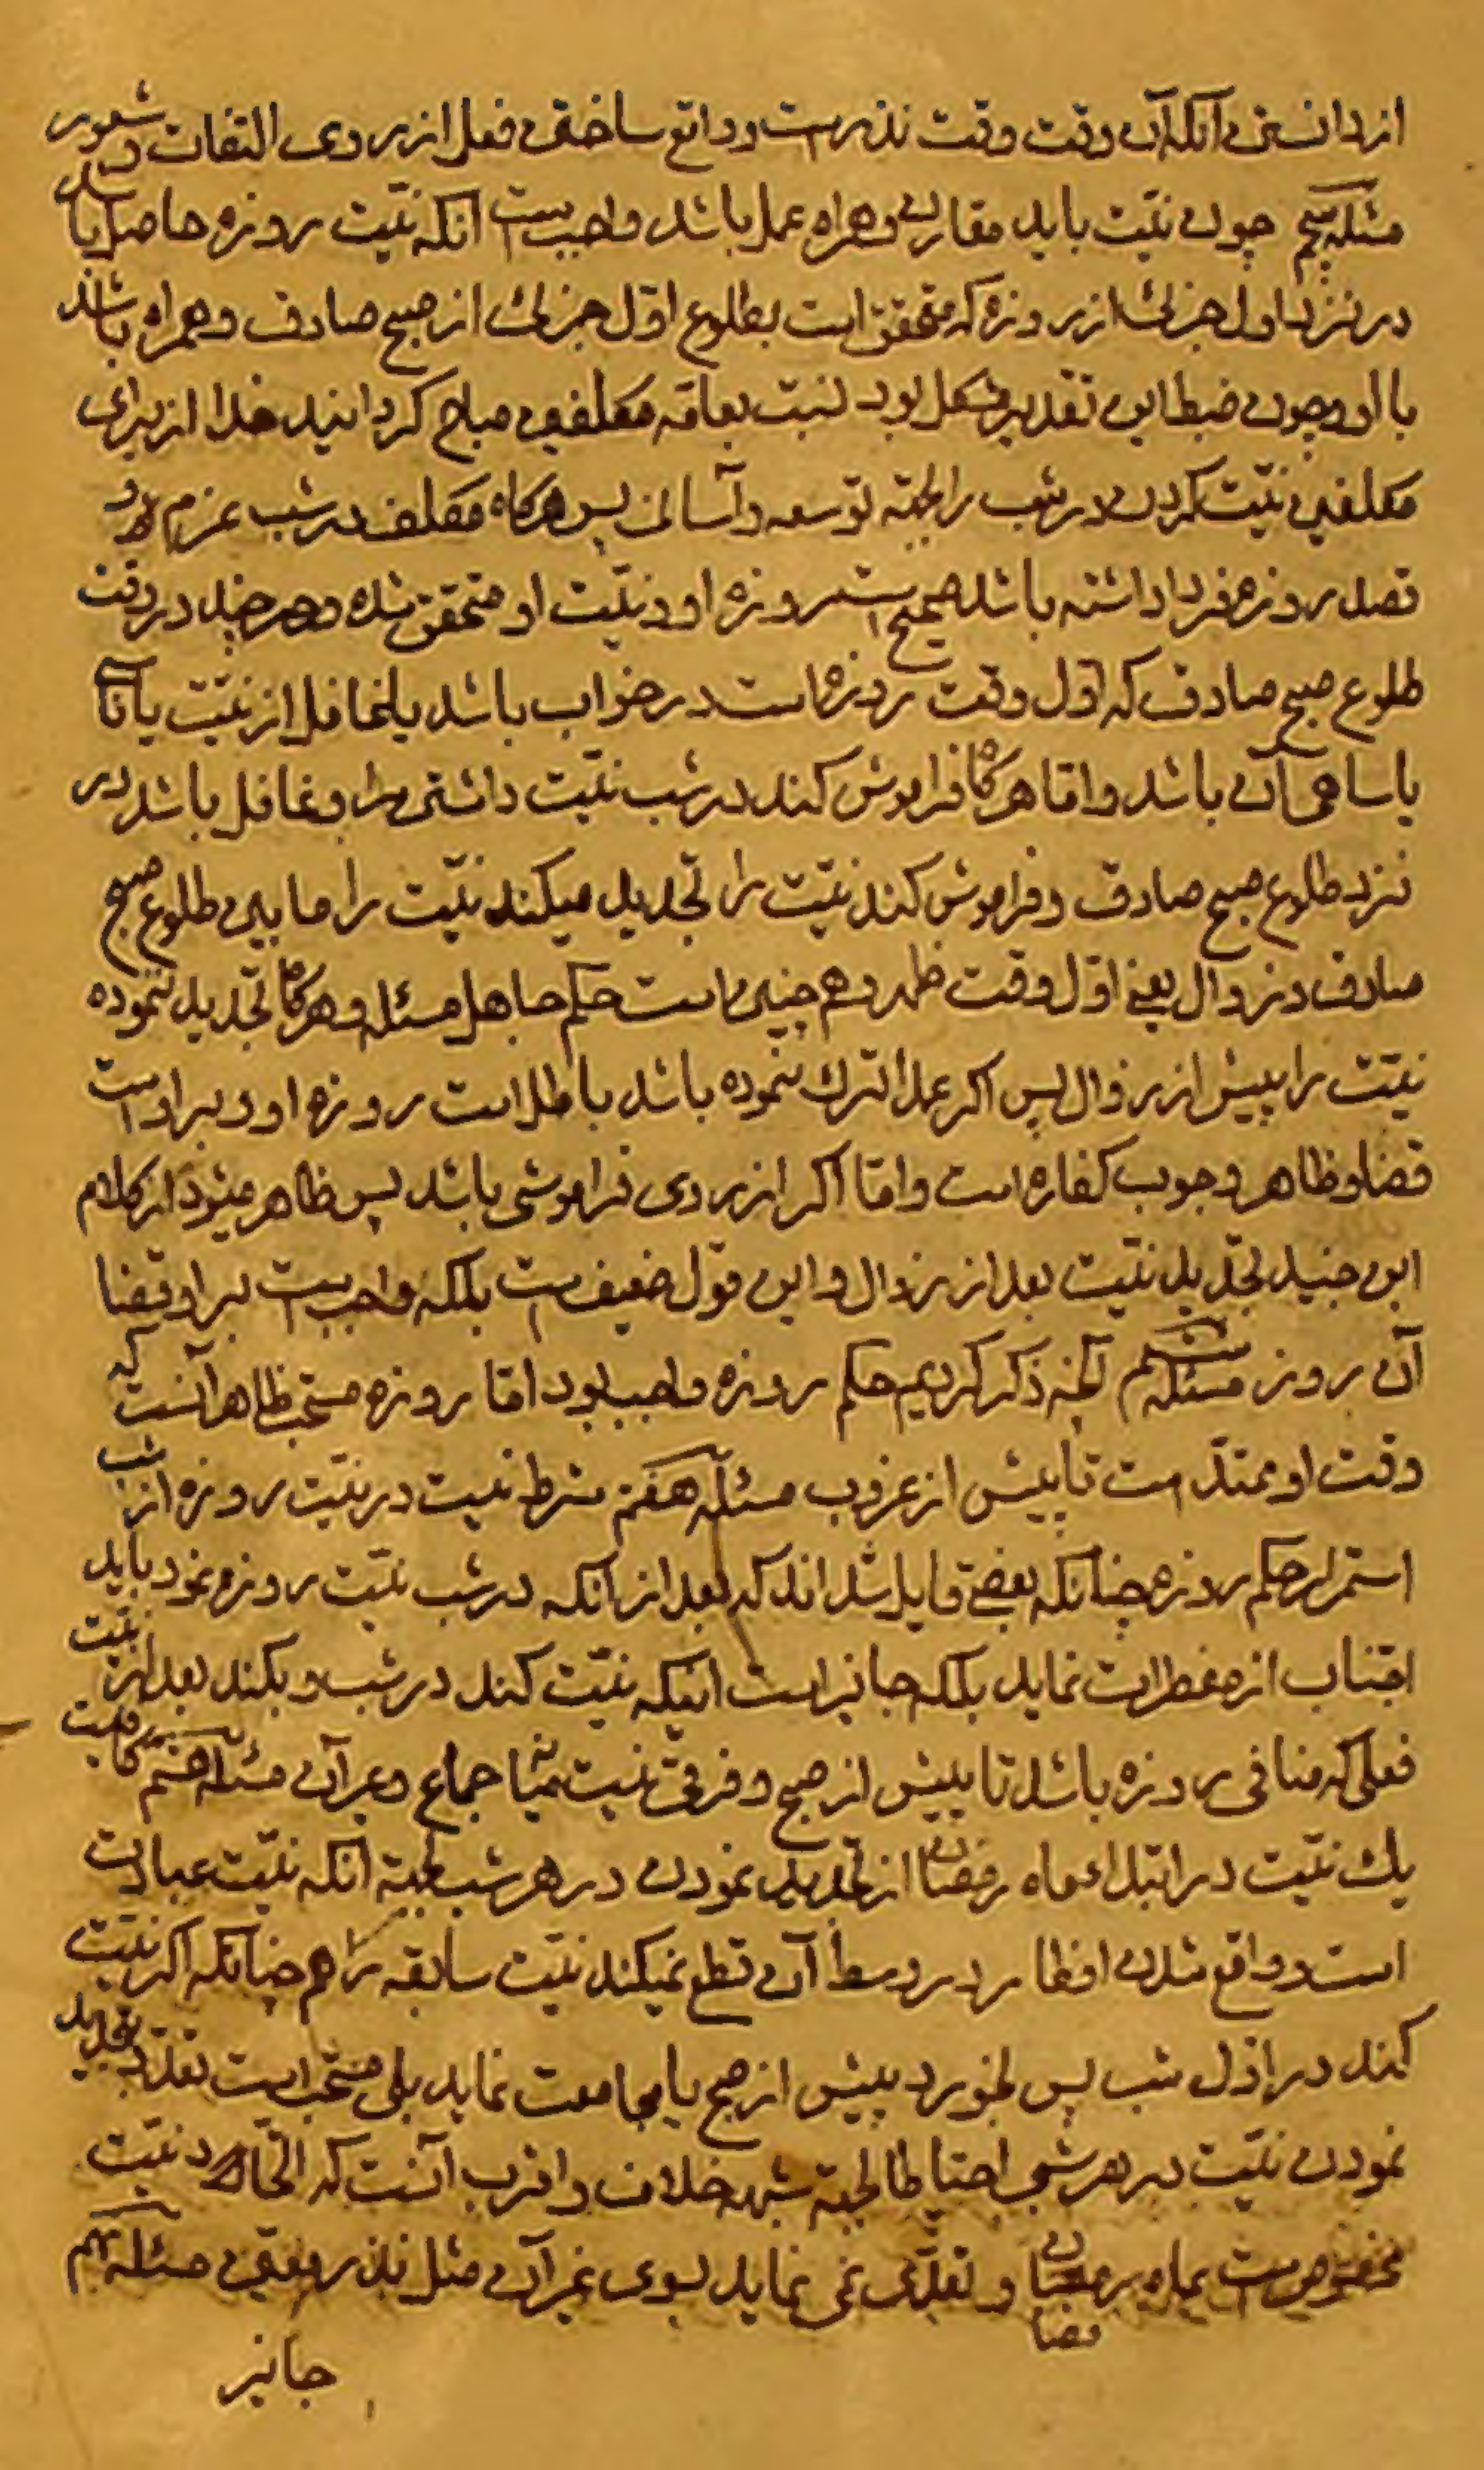 از دانستن آنکه آن وقت وقت نذرست و واقع ساختن فعل از روی التفات و شعور
مسئله پنجم چون نیّت باید مقارن و همراه عمل باشد واجبست آنکه نیّت روزه حاصل باشد
در نزد اول جزئی از روزه که متحقق است بطلوع اوّل جزئی از صبح صادق و همراه باشد
با او و چون ضبط این تقدیر مشکل بود نسبت بعامّه مکلفین مباح کردانید خدا از برای
مکلفین نیّت کردن در شب را بجهة توسعه و آسانی پس هرکاه مکلف در شب عزم و
قصد روزه فردا داشته باشد صحیح است روزه او و نیّت او متحقق شده و هر چند در وقت
طلوع صبح صادق که اوّل وقت روزه است در خواب باشد یا غافل از نیّت یا ناسی
یا ساهی آن باشد و امّا هرکاه فراموش کند در شب نیّت داشتن را و غافل باشد در
نزد طلوع صبح صادق و فراموش کند نیّت را تجدید میکند نیّت را مابین طلوع صبح
صادق و زوال یعنی اوّل وقت ظهر و هم چنین است حکم جاهل مسئله و هرکاه تجدید ننموده
نیّت را پیش از زوال پس اکر عمداً ترک نموده باشد باطل است روزه او و بر او است
قضا و ظاهر وجوب کفاره است و امّا اکر از روی فراموشی باشد پس ظاهر میشود از کلام
ابن جنید تجدید نیّت بعد از زوال و این قول ضعیفست بلکه واجبست بر او قضا
آن روز مسئله ششم آنچه ذکر کردیم حکم روزه واجب بود امّا روزه مستحب ظاهر آنست که
وقت او ممتدّ است تا پیش از غروب مسئله هفتم شرط نیست در نیّت روزه از شب
استمرار حکم روزه چنانکه بعضی قایل شده‌اند که بعد از آنکه در شب نیّت روزه نمود باید
اجتناب از مفطرات نماید بلکه جایز است اینکه نیّت کند در شب و بکند بعد از نیّت
فعلی که منافی روزه باشد تا پیش از صبح و فرقی نیست میان جماع و غیر آن مسئله هشتم کافیست
یک نیّت در ابتداء ماه رمضان از تجدید نمودن در هر شب بجهة آنکه نیّت عبادت
است و واقع شدن افطار در وسط آن قطع نمیکند نیّت سابقه را هم چنانکه اکر نیّت
کند در اوّل شب پس بخورد پیش از صبح یا مجامعت نماید بلی مستحب است تعدّد و تجدید
نمودن نیّت در هر شب احتیاطا بجهة شبهه خلاف و اقرب آنست که اتّحاد نیّت
مخصوصست بماه رمضان و تعدّی نمی نماید بسوی غیر آن مثل نذر معیّن مسئله نهم
قضا
جایز